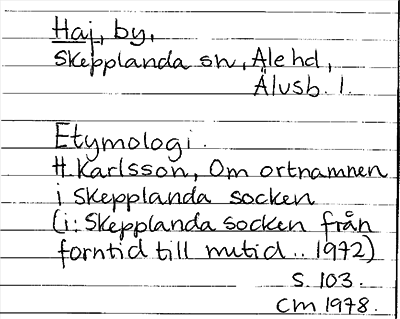 Haj, by,
Skepplanda sn, Ale hd,
Älvsb. l.
Etymologi.
H. Karlsson, Om ortnamnen
i Skepplanda socken
(i: Skepplanda socken från
forntid till nutid .. 1972)
S. 103.
CM 1978.